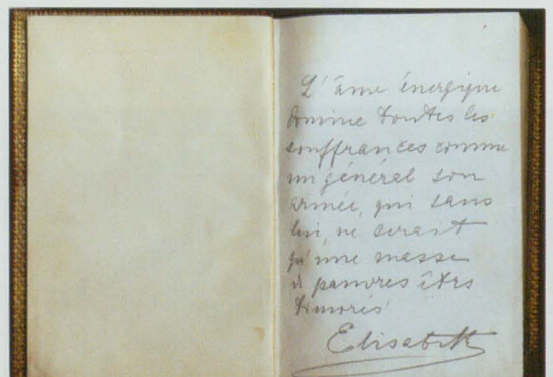 L'âme énergique
domine toutes les
souffrances comme
un général son
armée, qui sans
lui, ne serait
qu'une masse
de pauvres êtres
timorés
Elisabeth